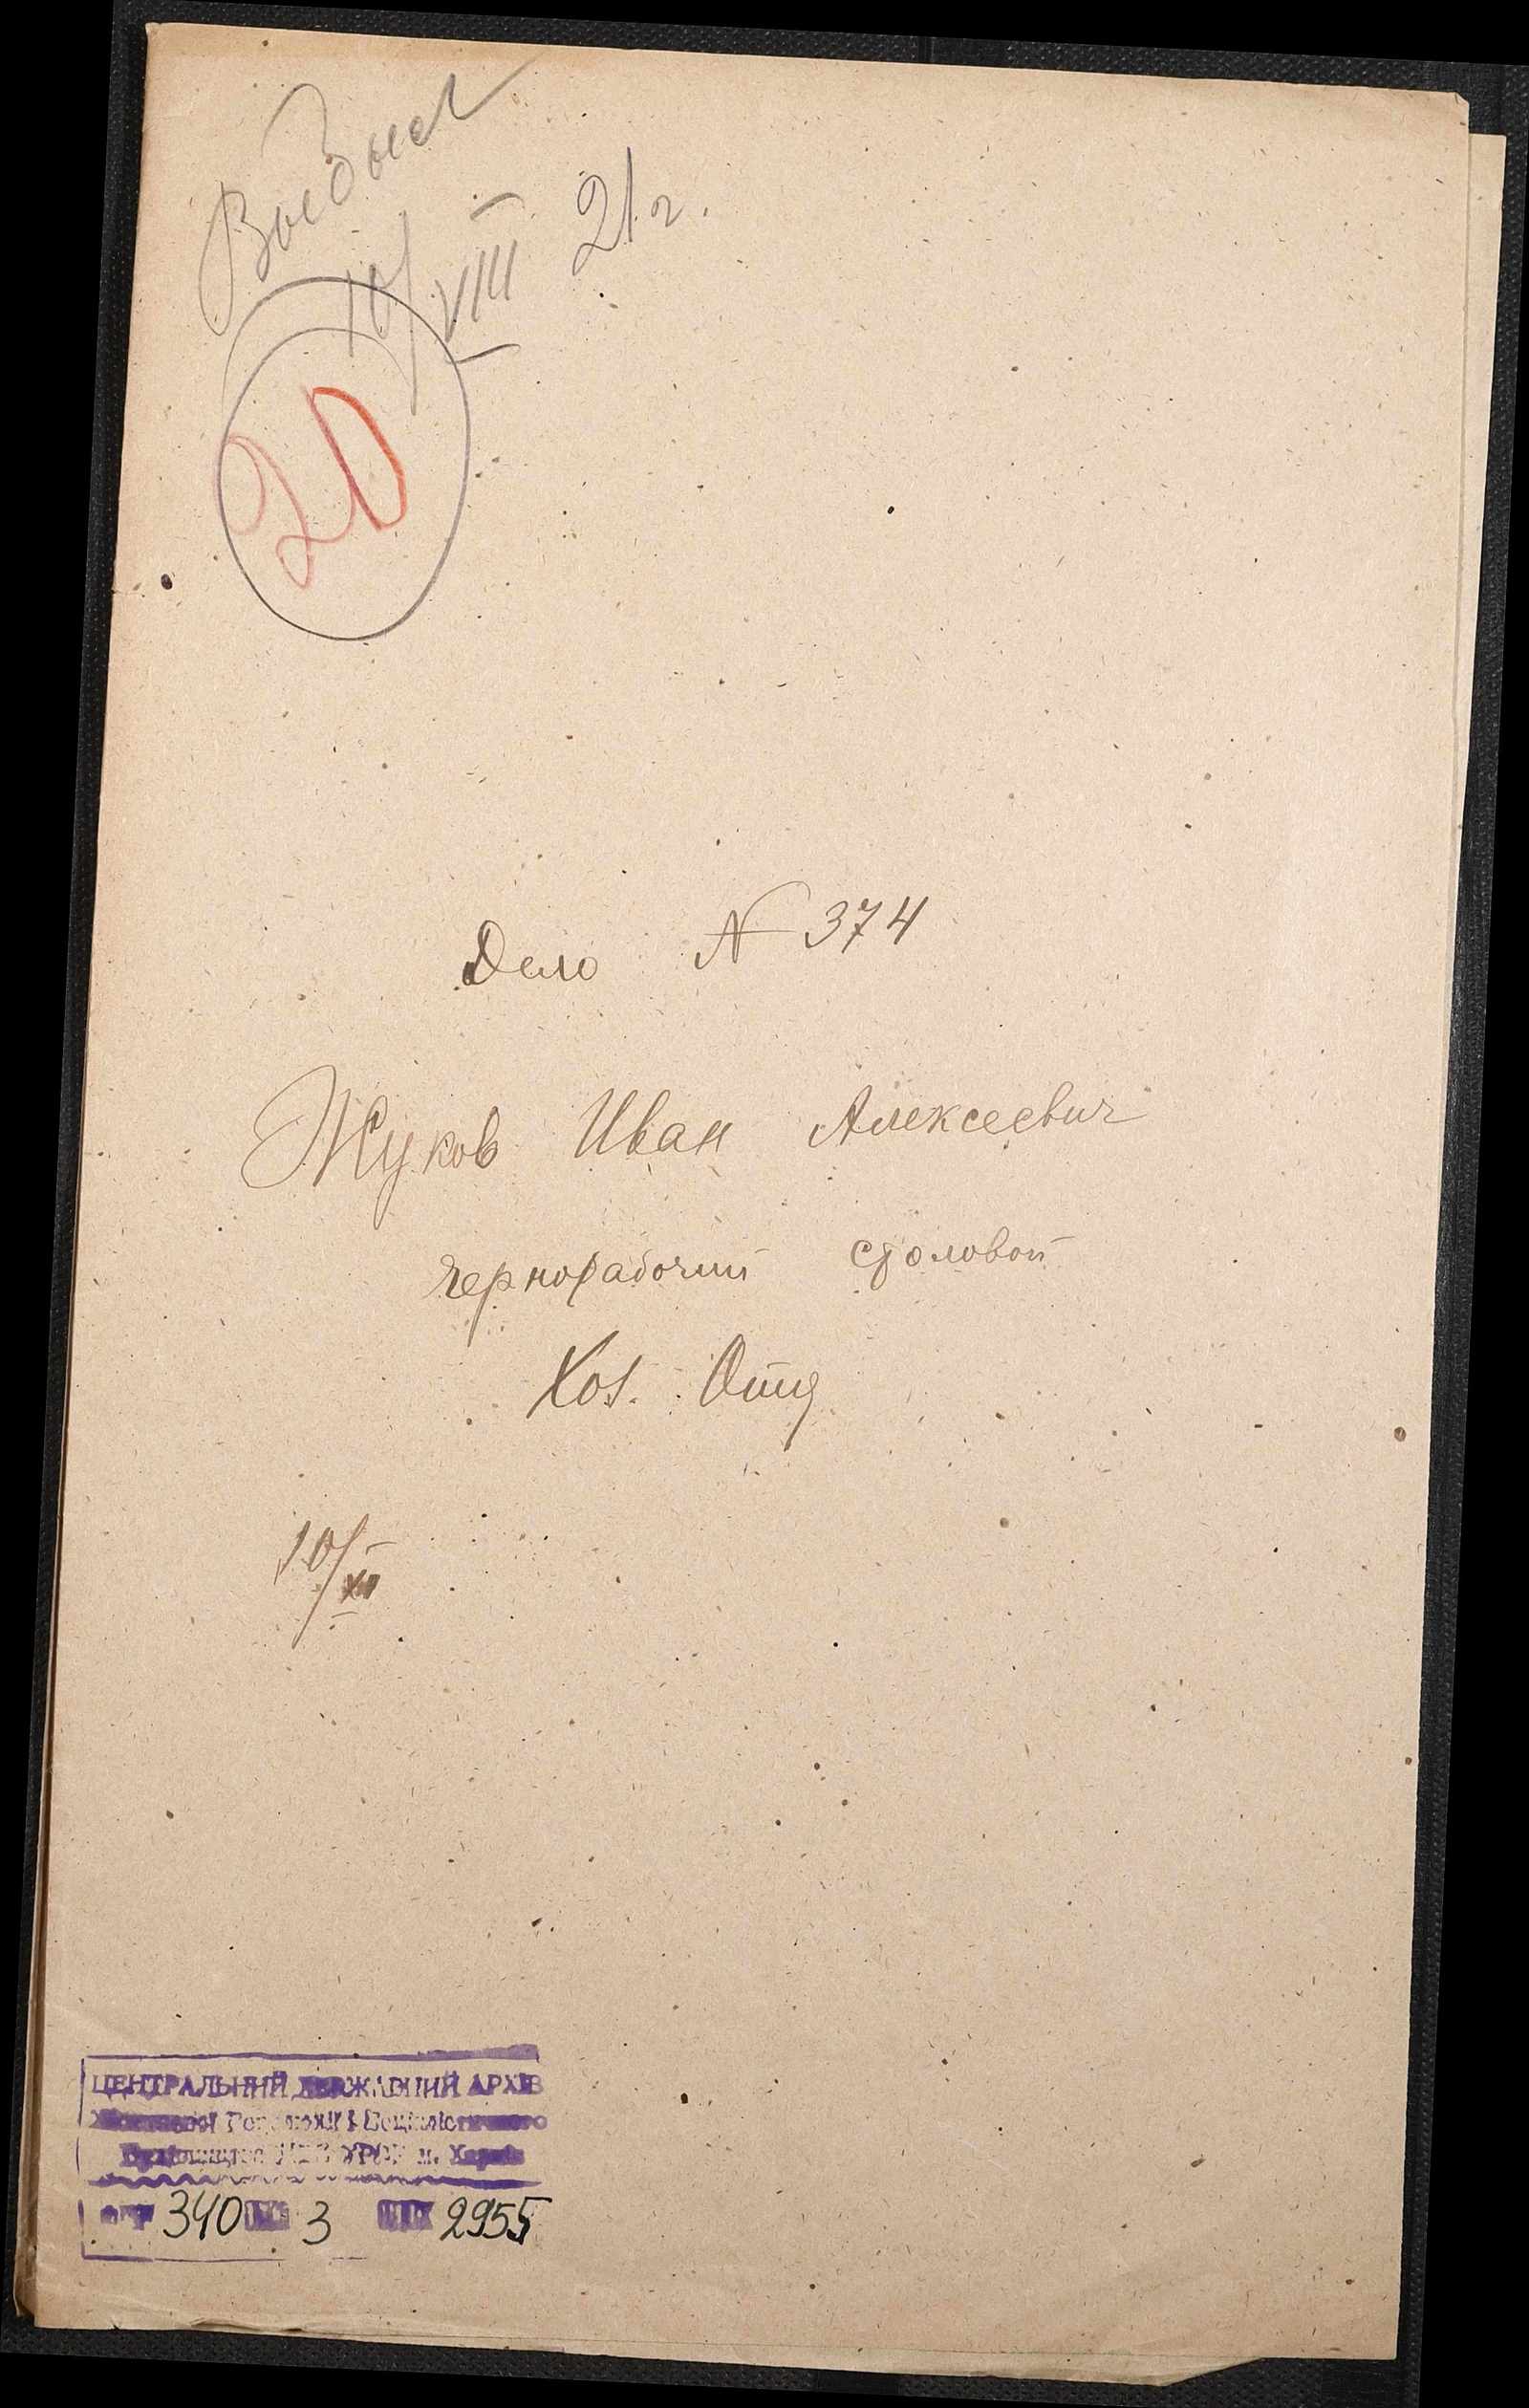 Выбыл
10/VIII 21 г.
20
Дело № 374
Жуков Иван Алексеевич
чернорабочий столовой
Хоз. Отд
10/XII
ЦЕНТРАЛЬНИЙ ДЕРЖАВНИЙ АРХІВ
Революції і Соціалістичного
УРСР м. Харків
340 3 2955